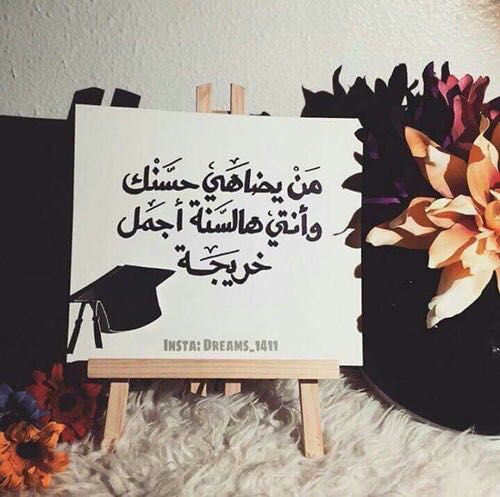 مَنْ يضاهي حسَّنْك
وأنتي هالسَّنة أجمل
خريجَة
INSTA: DREAMS_1411